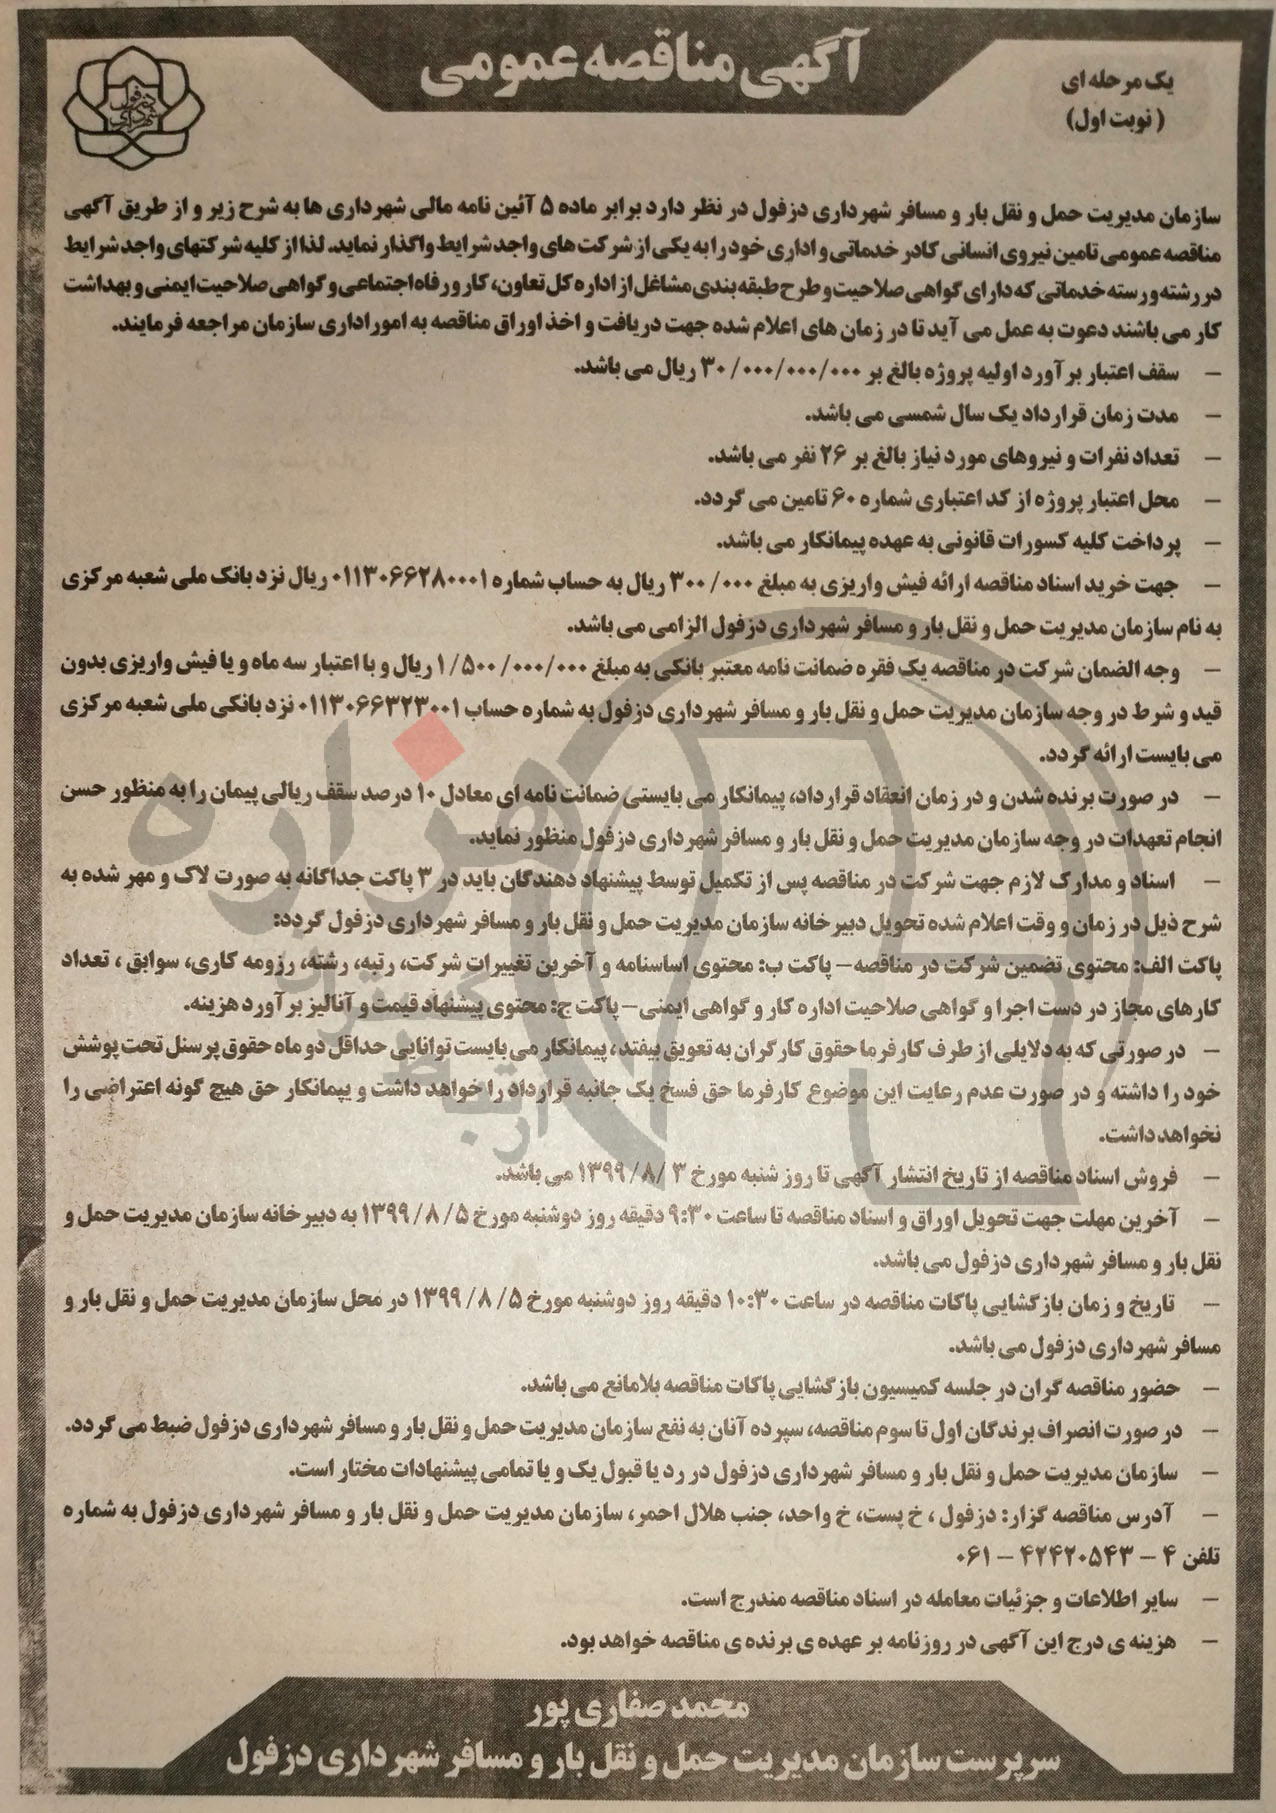 آگهی مناقصه عمومی
یک مرحله ای
(نوبت اول)
شهرداری دزفول
سازمان مدیریت حمل و نقل بار و مسافر شهرداری دزفول در نظر دارد برابر ماده ۵ آئین نامه مالی شهرداری ها به شرح زیر و از طریق آگهی
مناقصه عمومی تامین نیروی انسانی کادر خدماتی و اداری خود را به یکی از شرکت های واجد شرایط واگذار نماید. لذا از کلیه شرکتهای واجد شرایط
در رشته و رسته خدماتی که دارای گواهی صلاحیت و طرح طبقه بندی مشاغل از اداره کل تعاون، کار و رفاه اجتماعی و گواهی صلاحیت ایمنی و بهداشت
کار می باشند دعوت به عمل می آید تا در زمان های اعلام شده جهت دریافت و اخذ اوراق مناقصه به امور اداری سازمان مراجعه فرمایند.
– سقف اعتبار برآورد اولیه پروژه بالغ بر ۳۰/۰۰۰/۰۰۰/۰۰۰ ریال می باشد.
– مدت زمان قرارداد یک سال شمسی می باشد.
– تعداد نفرات و نیروهای مورد نیاز بالغ بر ۲۶ نفر می باشد.
– محل اعتبار پروژه از کد اعتباری شماره ۶۰ تامین می گردد.
– پرداخت کلیه کسورات قانونی به عهده پیمانکار می باشد.
– جهت خرید اسناد مناقصه ارائه فیش واریزی به مبلغ ۳۰۰/۰۰۰ ریال به حساب شماره ۰۱۱۳۰۶۶۲۸۰۰۰۱ ریال نزد بانک ملی شعبه مرکزی
به نام سازمان مدیریت حمل و نقل بار و مسافر شهرداری دزفول الزامی می باشد.
– وجه الضمان شرکت در مناقصه یک فقره ضمانت نامه معتبر بانکی به مبلغ ۱/۵۰۰/۰۰۰/۰۰۰ ریال و با اعتبار سه ماه و یا فیش واریزی بدون
قید و شرط در وجه سازمان مدیریت حمل و نقل بار و مسافر شهرداری دزفول به شماره حساب ۰۱۱۳۰۶۶۳۲۳۰۰۱ نزد بانکی ملی شعبه مرکزی
می بایست ارائه گردد.
– در صورت برنده شدن و در زمان انعقاد قرارداد، پیمانکار می بایستی ضمانت نامه ای معادل ۱۰ درصد سقف ریالی پیمان را به منظور حسن
انجام تعهدات در وجه سازمان مدیریت حمل و نقل بار و مسافر شهرداری دزفول منظور نماید.
– اسناد و مدارک لازم جهت شرکت در مناقصه پس از تکمیل توسط پیشنهاد دهندگان باید در ۳ پاکت جداگانه به صورت لاک و مهر شده به
شرح ذیل در زمان و وقت اعلام شده تحویل دبیرخانه سازمان مدیریت حمل و نقل بار و مسافر شهرداری دزفول گردد:
پاکت الف: محتوی تضمین شرکت در مناقصه– پاکت ب: محتوی اساسنامه و آخرین تغییرات شرکت، رتبه، رشته، رزومه کاری، سوابق ، تعداد
کارهای مجاز در دست اجرا و گواهی صلاحیت اداره کار و گواهی ایمنی– پاکت ج: محتوی پیشنهاد قیمت و آنالیز برآورد هزینه.
– در صورتی که به دلایلی از طرف کارفرما حقوق کارگران به تعویق بیفتد، پیمانکار می بایست توانایی حداقل دو ماه حقوق پرسنل تحت پوشش
خود را داشته و در صورت عدم رعایت این موضوع کارفرما حق فسخ یک جانبه قرارداد را خواهد داشت و پیمانکار حق هیچ گونه اعتراضی را
نخواهد داشت.
– فروش اسناد مناقصه از تاریخ انتشار آگهی تا روز شنبه مورخ ۱۳۹۹/۸/۳ می باشد.
– آخرین مهلت جهت تحویل اوراق و اسناد مناقصه تا ساعت ۹:۳۰ دقیقه روز دوشنبه مورخ ۱۳۹۹/۸/۵ به دبیرخانه سازمان مدیریت حمل و
نقل بار و مسافر شهرداری دزفول می باشد.
– تاریخ و زمان بازگشایی پاکات مناقصه در ساعت ۱۰:۳۰ دقیقه روز دوشنبه مورخ ۱۳۹۹/۸/۵ در محل سازمان مدیریت حمل و نقل بار و
مسافر شهرداری دزفول می باشد.
– حضور مناقصه گران در جلسه کمیسیون بازگشایی پاکات مناقصه بلامانع می باشد.
– در صورت انصراف برندگان اول تا سوم مناقصه، سپرده آنان به نفع سازمان مدیریت حمل و نقل بار و مسافر شهرداری دزفول ضبط می گردد.
– سازمان مدیریت حمل و نقل بار و مسافر شهرداری دزفول در رد یا قبول یک و یا تمامی پیشنهادات مختار است.
– آدرس مناقصه گزار: دزفول ، خ پست، خ واحد، جنب هلال احمر، سازمان مدیریت حمل و نقل بار و مسافر شهرداری دزفول به شماره
تلفن ۴ – ۴۲۴۲۰۵۴۳ – ۰۶۱
– سایر اطلاعات و جزئیات معامله در اسناد مناقصه مندرج است.
– هزینه ی درج این آگهی در روزنامه بر عهده ی برنده ی مناقصه خواهد بود.
محمد صفاری پور
سرپرست سازمان مدیریت حمل و نقل بار و مسافر شهرداری دزفول
هزاره